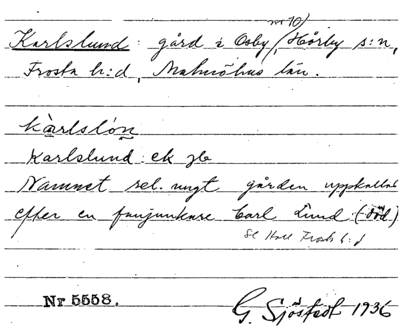 nr 10/
Karlslund: gård i Osby, Hörby s:n,
Frosta h:d, Malmöhus län.
kàrlslón
Karlslund: ek jb
Namnet rel. nygt gården uppkallat
efter en fanjunkare Carl Lund. (död)
Se Frosta h:d
Nr 5558.
G. Sjöstedt 1936